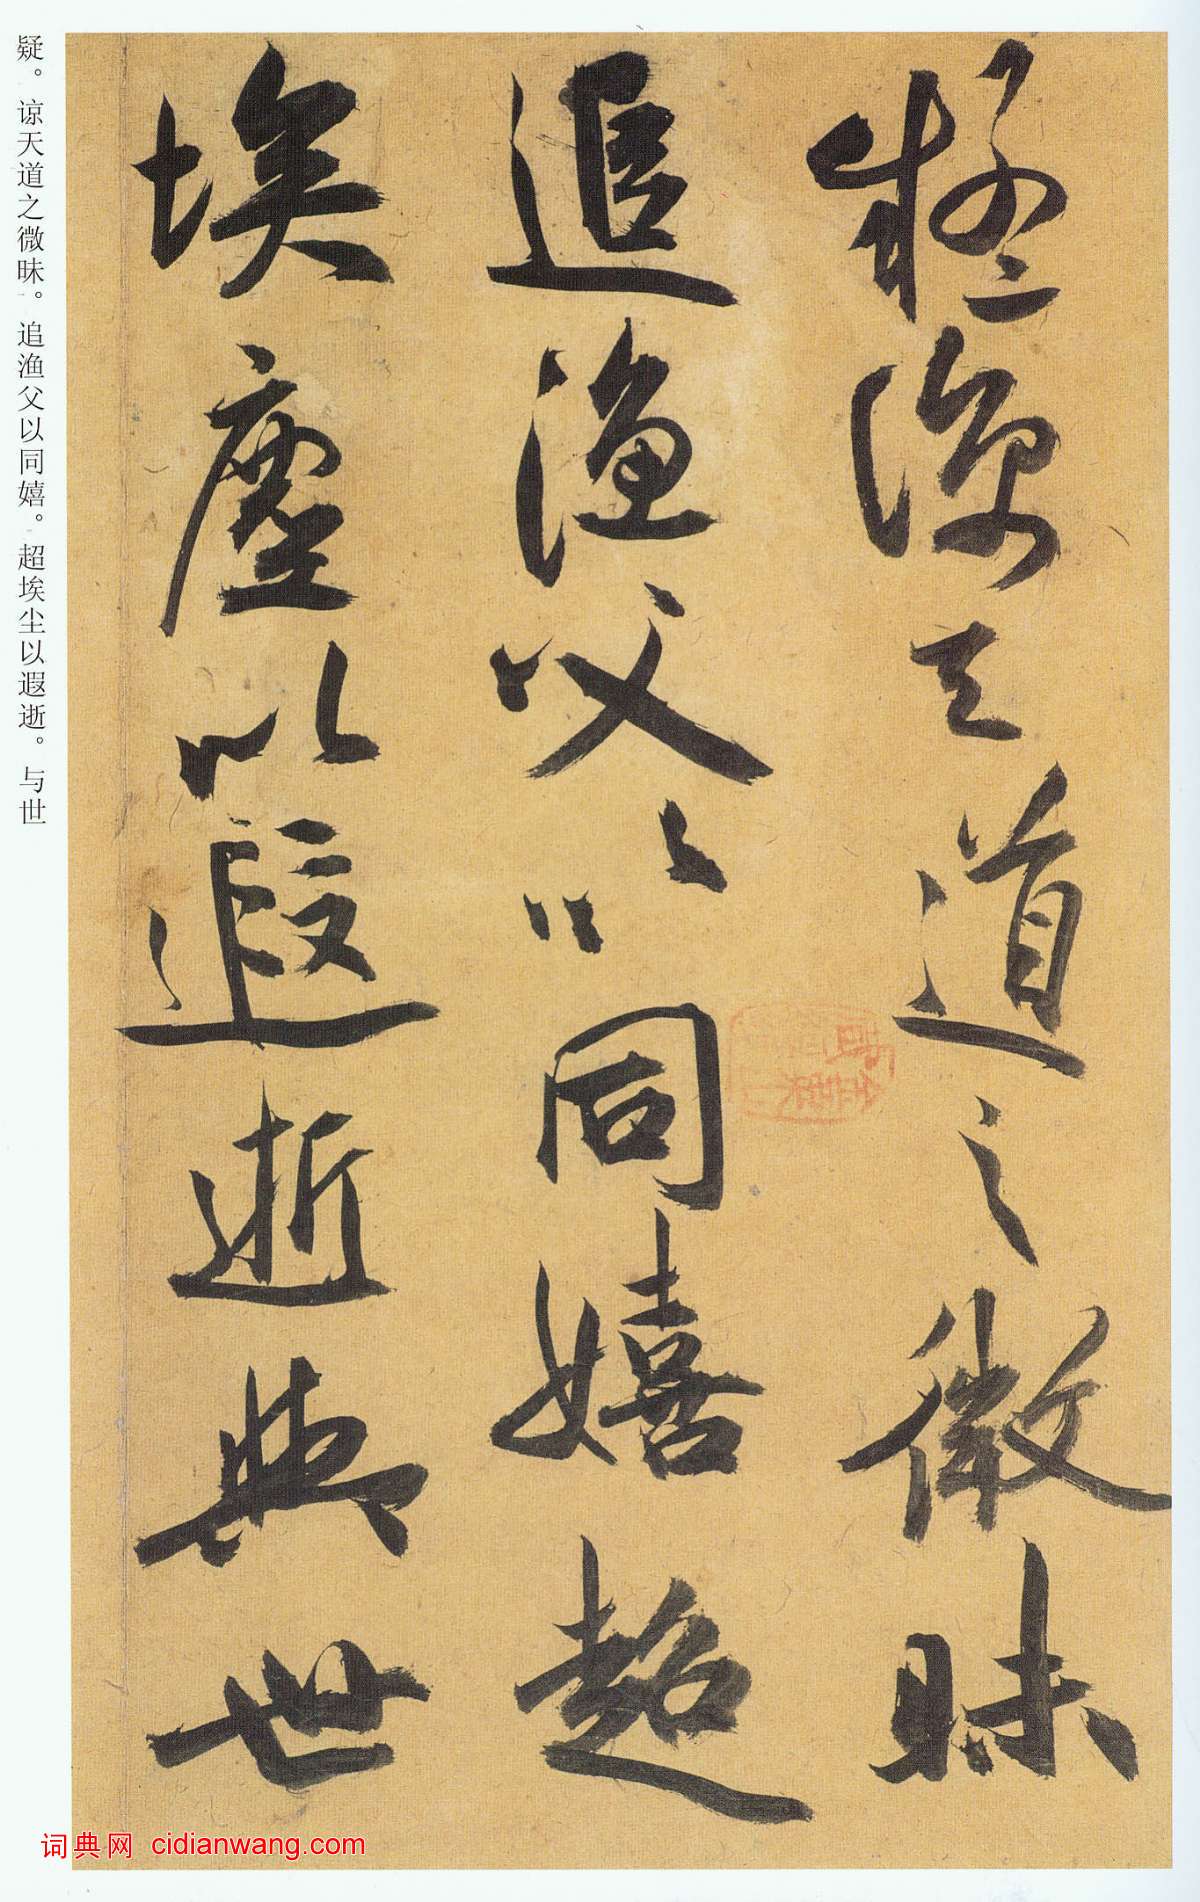 疑谅天道之微昧
追渔父以同嬉超
埃尘以遐逝与世
疑。谅天道之微昧。追渔父以同嬉。超埃尘以遐逝。与世
词典网 cidianwang.com